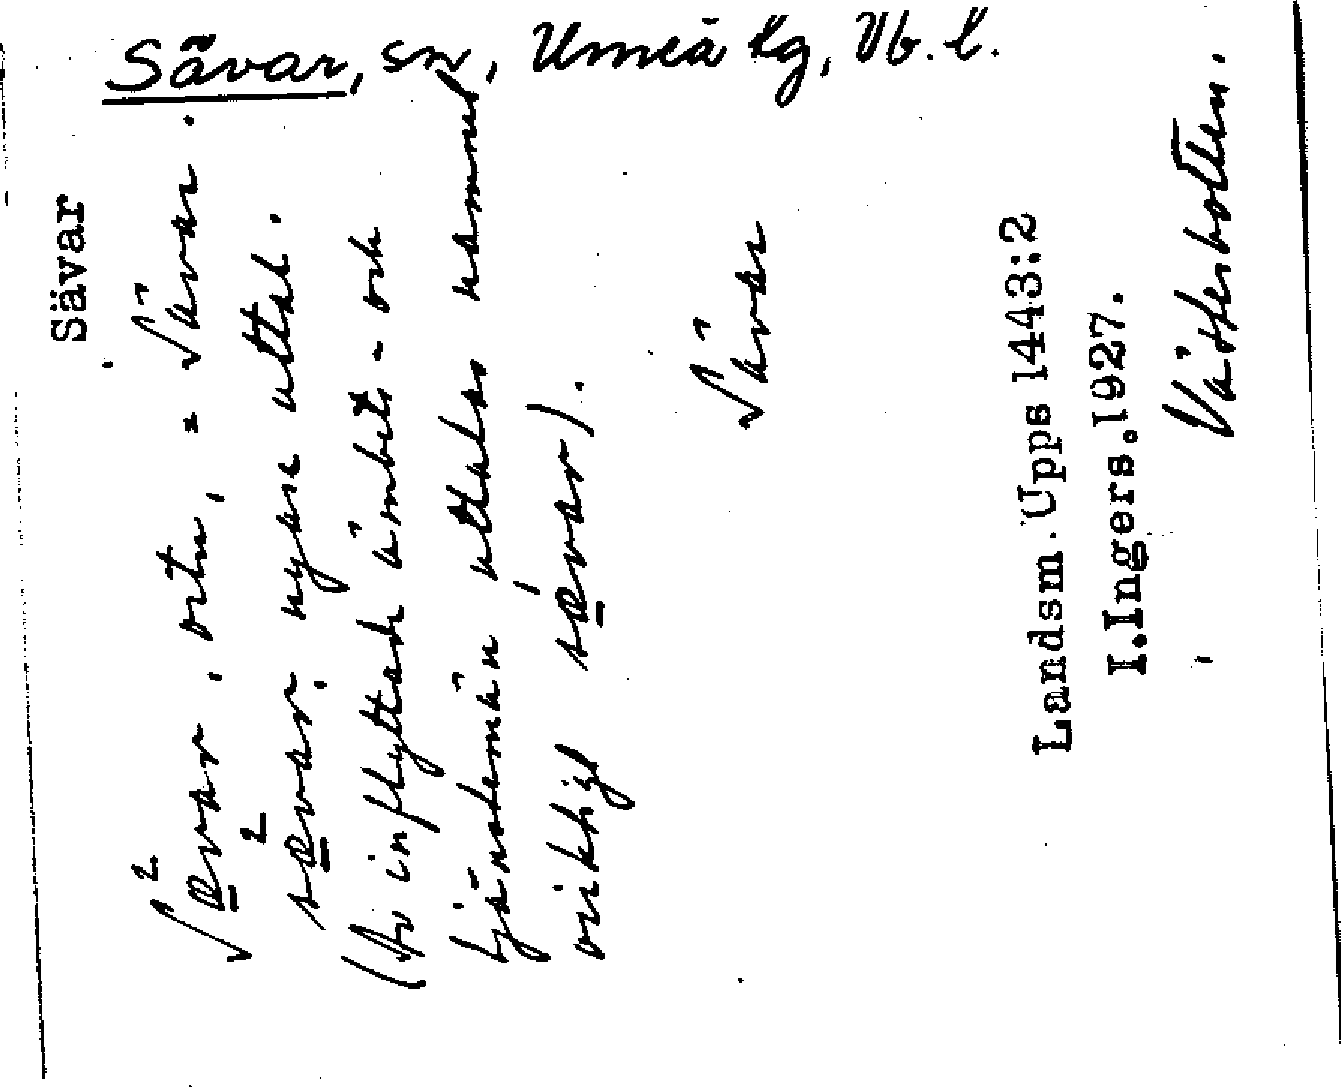 Sävar, sn, Umeå lg, Vb. l.
Sävar
Sævar, ortn, = Sävar.
sævar, nyare uttal.
(Av inflyttade ämbets- och
tjänstemän uttalas namnet
oriktigt sævar).
Sävar
Landsm. Upps 1443:2
I.Ingers.1927.
Västerbotten.